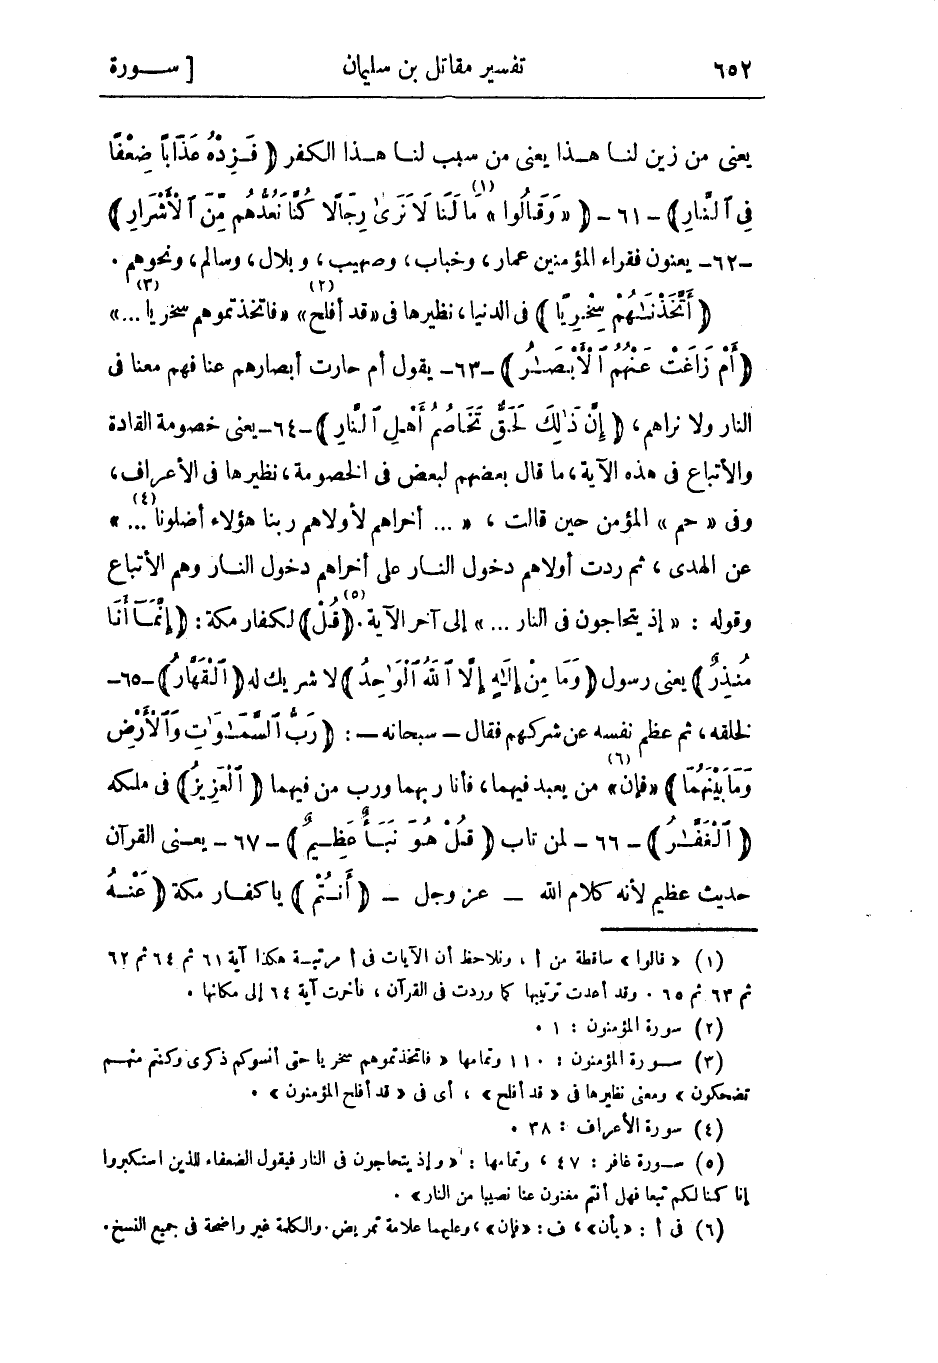 ٦٥٢ تفسير مقاتل بن سليمان [ سـورة
يعنى من زين لنـا هـذا يعنى من سبب لنـا هـذا الكفر ﴿ فَـزِدْهُ عَذَابًا ضِعْفًا
فِى ٱلنَّارِ ﴾ - ٦١ - ﴿ « وَقَالُوا » (١) مَا لَنَا لَا نَرَىٰ رِجَالًا كُنَّا نَعُدُّهُم مِّنَ ٱلْأَشْرَارِ ﴾
-٦٢- يعنون فقراء المؤمنين عمار، وخباب، وصهيب، وبلال، وسالم، ونحوهم .
﴿ أَتَّخَذْنَـٰهُمْ سِخْرِيًّا ﴾ فى الدنيا، نظيرها فى «قد أفلح» (٢) «فاتخذتموهم سخريا ...» (٣)
﴿ أَمْ زَاغَتْ عَنْهُمُ ٱلْأَبْصَـٰرُ ﴾ -٦٣- يقول أم حارت أبصارهم عنا فهم معنا فى
النار ولا نراهم، ﴿ إِنَّ ذَٰلِكَ لَحَقٌّ تَخَاصُمُ أَهْلِ ٱلنَّارِ ﴾ -٦٤- يعنى خصومة القادة
والأتباع فى هذه الآية، ما قال بعضهم لبعض فى الخصومة، نظيرها فى الأعراف،
وفى « حم » المؤمن حين قالت ، « ... أخراهم لأولاهم ربنا هؤلاء أضلونا ... » (٤)
عن الهدى ، ثم ردت أولاهم دخول النـار على أخراهم دخول النـار وهم الأتباع
وقوله : « إذ يتحاجون فى النار ... » إلى آخر الآية. (٥) ﴿ قُلْ ﴾ لكفار مكة : ﴿ إِنَّمَآ أَنَا
مُنذِرٌ ﴾ يعنى رسول ﴿ وَمَا مِنْ إِلَـٰهٍ إِلَّا ٱللَّهُ ٱلْوَاٰحِدُ ﴾ لا شريك له ﴿ ٱلْقَهَّارُ ﴾ -٦٥-
لخلقه، ثم عظم نفسه عن شركهم فقال — سبحانه — : ﴿ رَبُّ ٱلسَّمَـٰوَٰتِ وَٱلْأَرْضِ
وَمَا بَيْنَهُمَا ﴾ «فإن» (٦) من يعبد فيهما، فأنا ربهما ورب من فيهما ﴿ ٱلْعَزِيزُ ﴾ فى ملكه
﴿ ٱلْغَفَّـٰرُ ﴾ - ٦٦ - لمن تاب ﴿ قُـلْ هُـوَ نَبَـأٌ عَظِـيمٌ ﴾ - ٦٧ - يعـنى القرآن
حديث عظيم لأنه كلام الله — عز وجل — ﴿ أَنـتُمْ ﴾ يا كفـار مكة ﴿ عَنْـهُ
(١) « قالوا » ساقطة من أ ، ونلاحظ أن الآيات فى أ مرتبـة هكذا آية ٦١ ثم ٦٤ ثم ٦٢
ثم ٦٣ ثم ٦٥ . وقد أعدت ترتيبها كما وردت فى القرآن ، فأخرت آية ٦٤ إلى مكانها .
(٢) سورة المؤمنون : ١ .
(٣) سـورة المؤمنون : ١١٠ وتمامها « فاتخذتموهم سخريا حتى أنسوكم ذكرى وكنتم منهـم
تضحكون » ومعنى نظيرها فى « قد أفلح » ، أى فى « قد أفلح المؤمنون » .
(٤) سورة الأعراف : ٣٨ .
(٥) سـورة غافر : ٤٧ ، وتمامها : « وإذ يتحاجون فى النار فيقول الضعفاء للذين استكبروا
إنا كنا لكم تبعا فهل أنتم مغنون عنا نصيبا من النار » .
(٦) فى أ : «بأن» ، ف : «فإن» ، وعليهما علامة تمريض. والكلمة غير واضحة فى جميع النسخ.